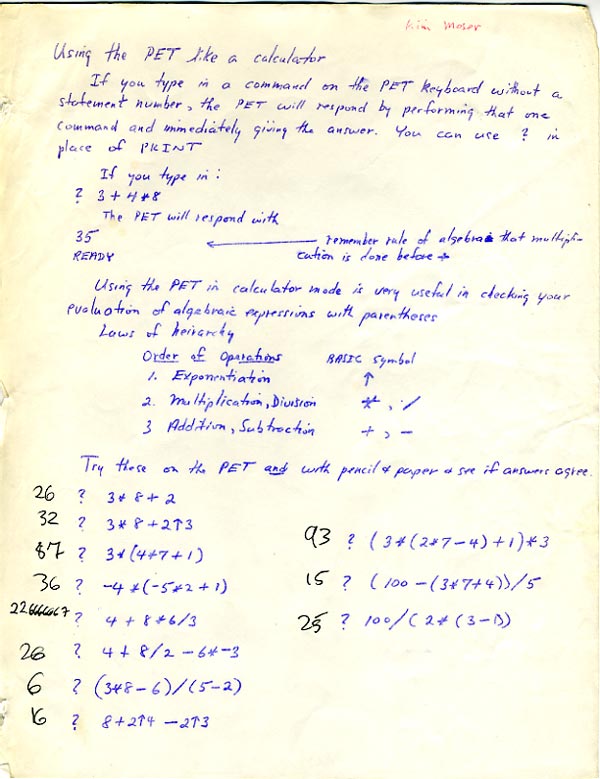 Kim Moser
Using the PET like a calculator
If you type in a command on the PET keyboard without a
statement number, the PET will respond by performing that one
command and immediately giving the answer. You can use ? in
place of PRINT
If you type in:
? 3+4*8
The PET will respond with
35
remember rule of algebra that multipli-
READY
cation is done before +
Using the PET in calculator mode is very useful in checking your
evaluation of algebraic expressions with parentheses
Laws of heirarchy
Order of Operations BASIC symbol
1. Exponentiation ↑
2. Multiplication, Division *, /
3 Addition, Subtraction +, -
Try these on the PET and with pencil & paper & see if answers agree.
26 ? 3*8+2
32 ? 3*8+2↑3
87 ? 3*(4*7+1)
36 ? -4*(-5*2+1)
22 ? 4+8*6/3
26 ? 4+8/2-6*-3
6 ? (3*8-6)/(5-2)
16 ? 8+2↑4-2↑3
93 ? (3*(2*7-4)+1)*3
15 ? (100-(3*7+4))/5
25 ? 100/(2*(3-1))